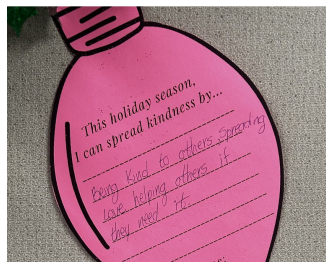 This holiday season,
I can spread kindness by...
Being Kind to others, Spreading
Love helping others if
they need it.